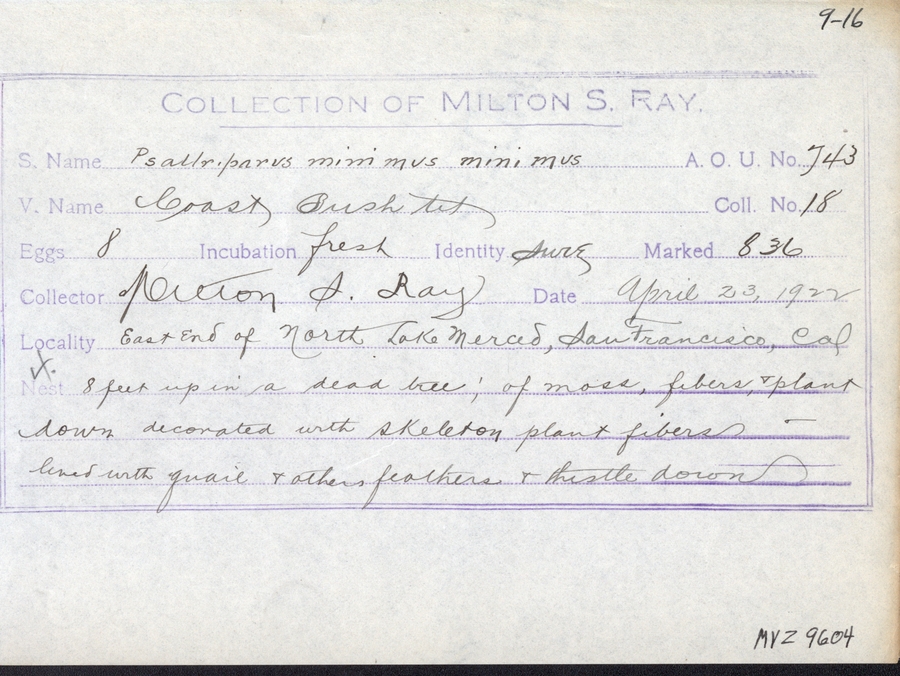 9-16
COLLECTION OF MILTON S. RAY.
S. Name Psaltriparus minimus minimus A. O. U. No. 743
V. Name Coast Bush tit Coll. No. 18
Eggs 8 Incubation fresh Identity sure Marked 836
Collector Milton S. Ray Date April 23, 1922
Locality East End of North Lake Merced, San Francisco, Cal
X.
Nest 8 feet up in a dead tree; of moss, fibers, & plant
down decorated with skeleton plant fibers —
lined with quail & others feathers & thistle down
MVZ 9604